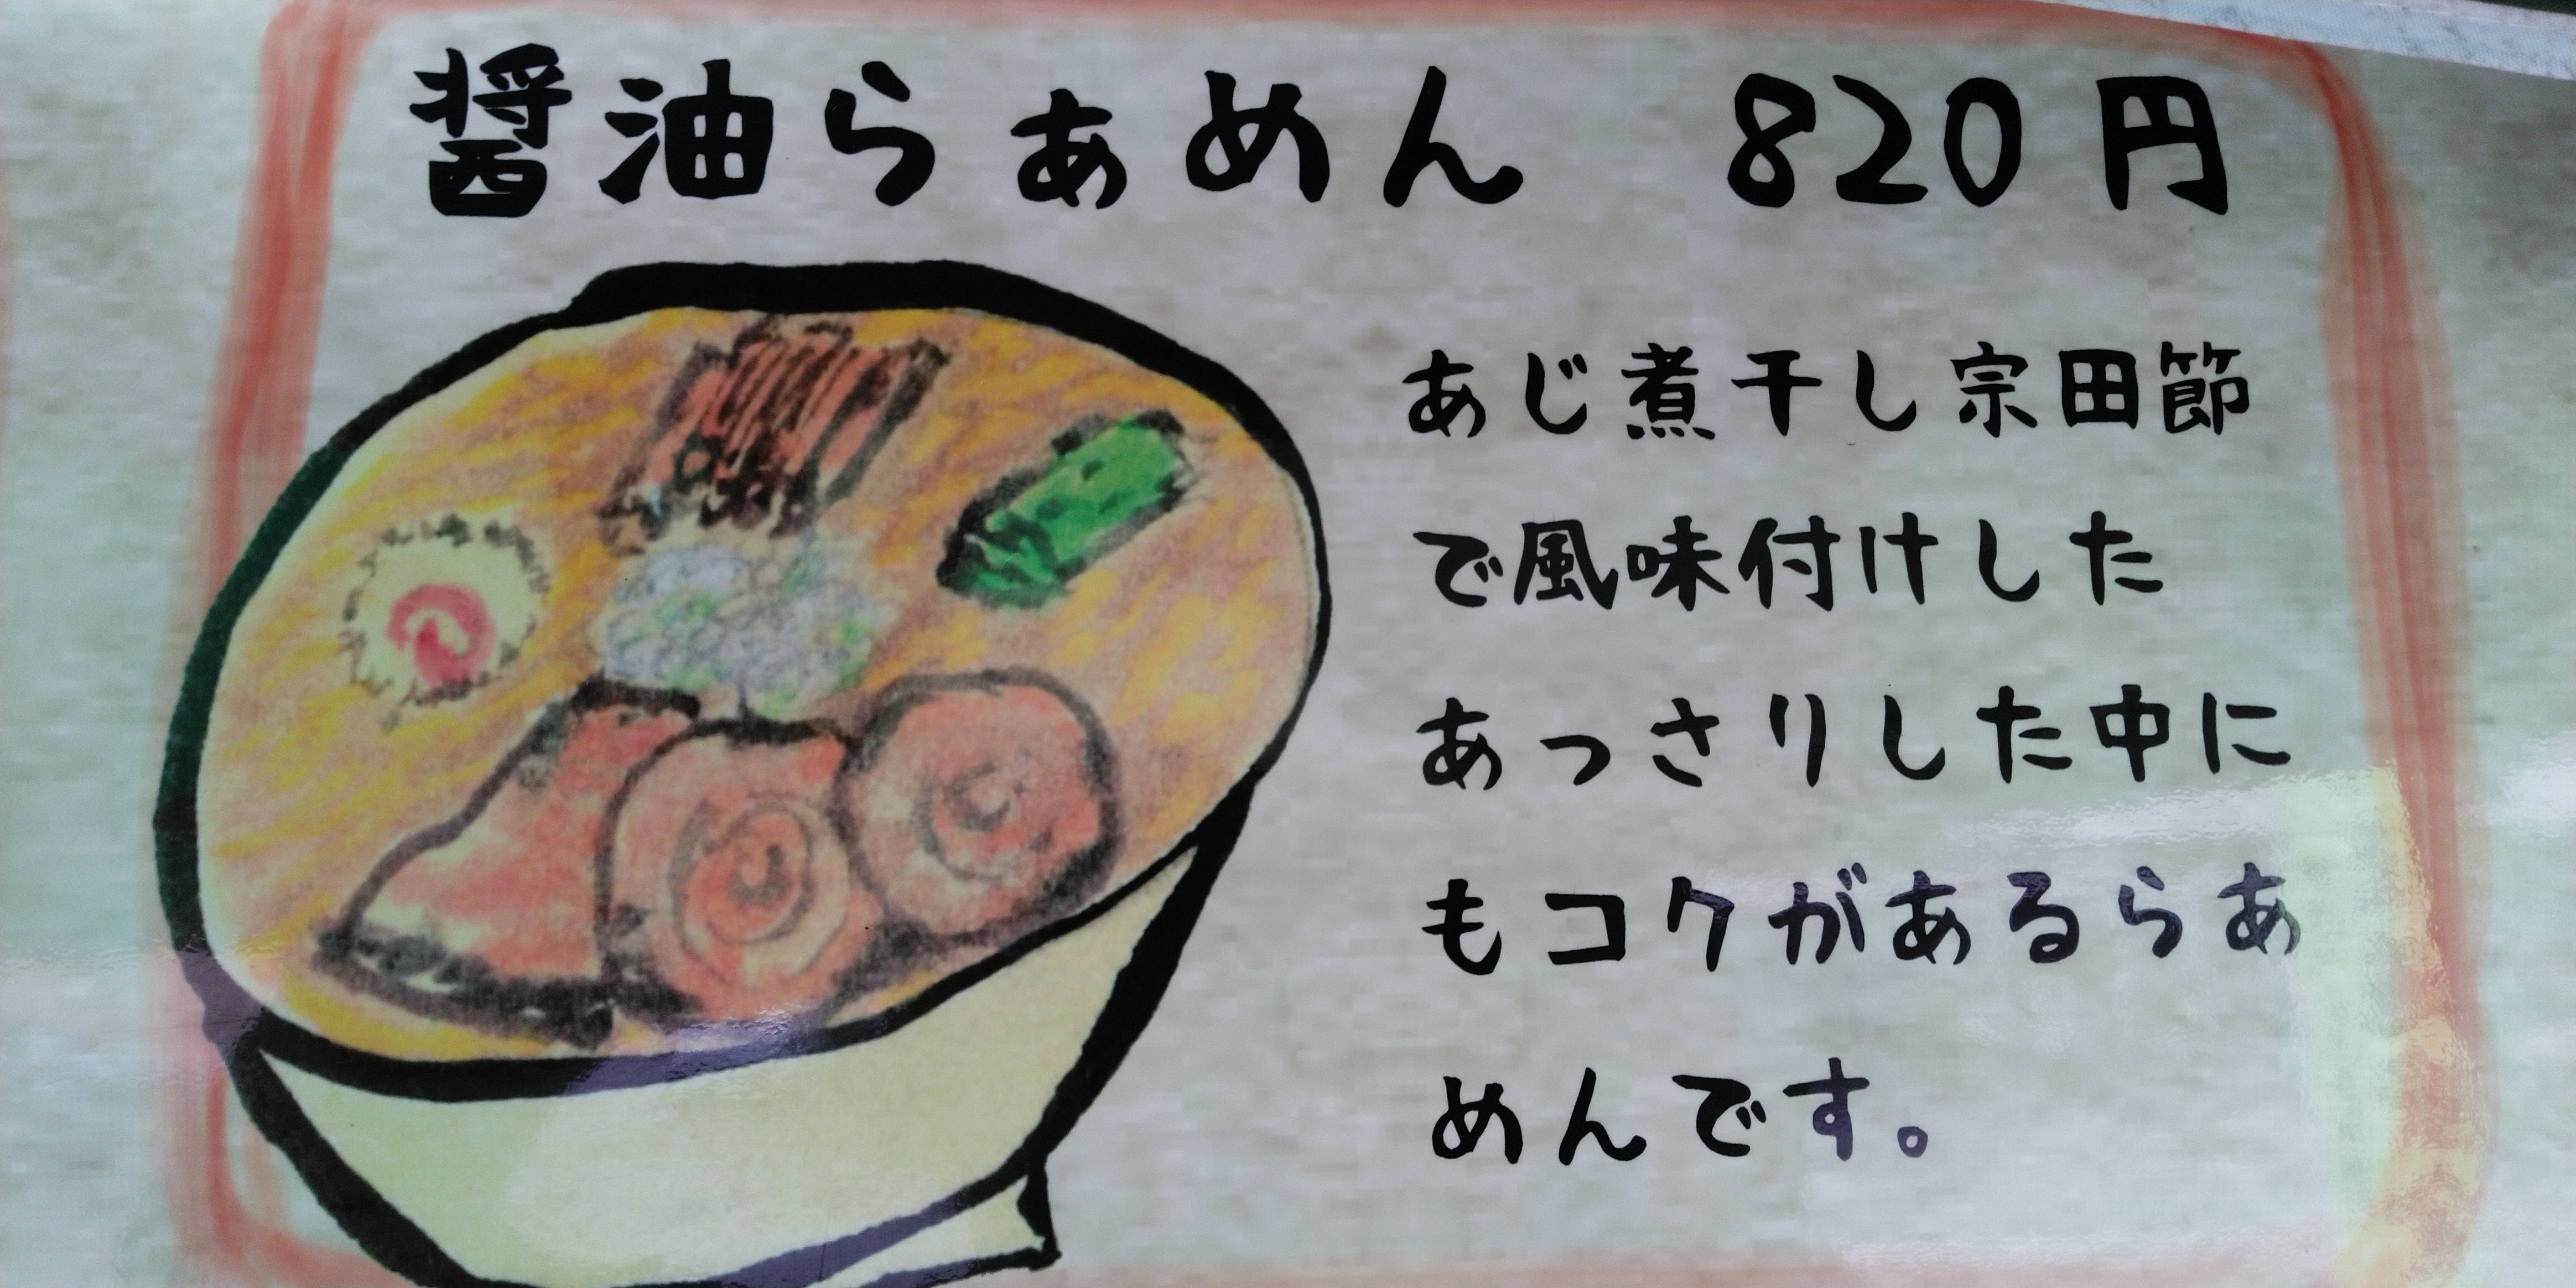 醤油らぁめん　820円
あじ煮干し宗田節
で風味付けした
あっさりした中に
もコクがあるらあ
めんです。